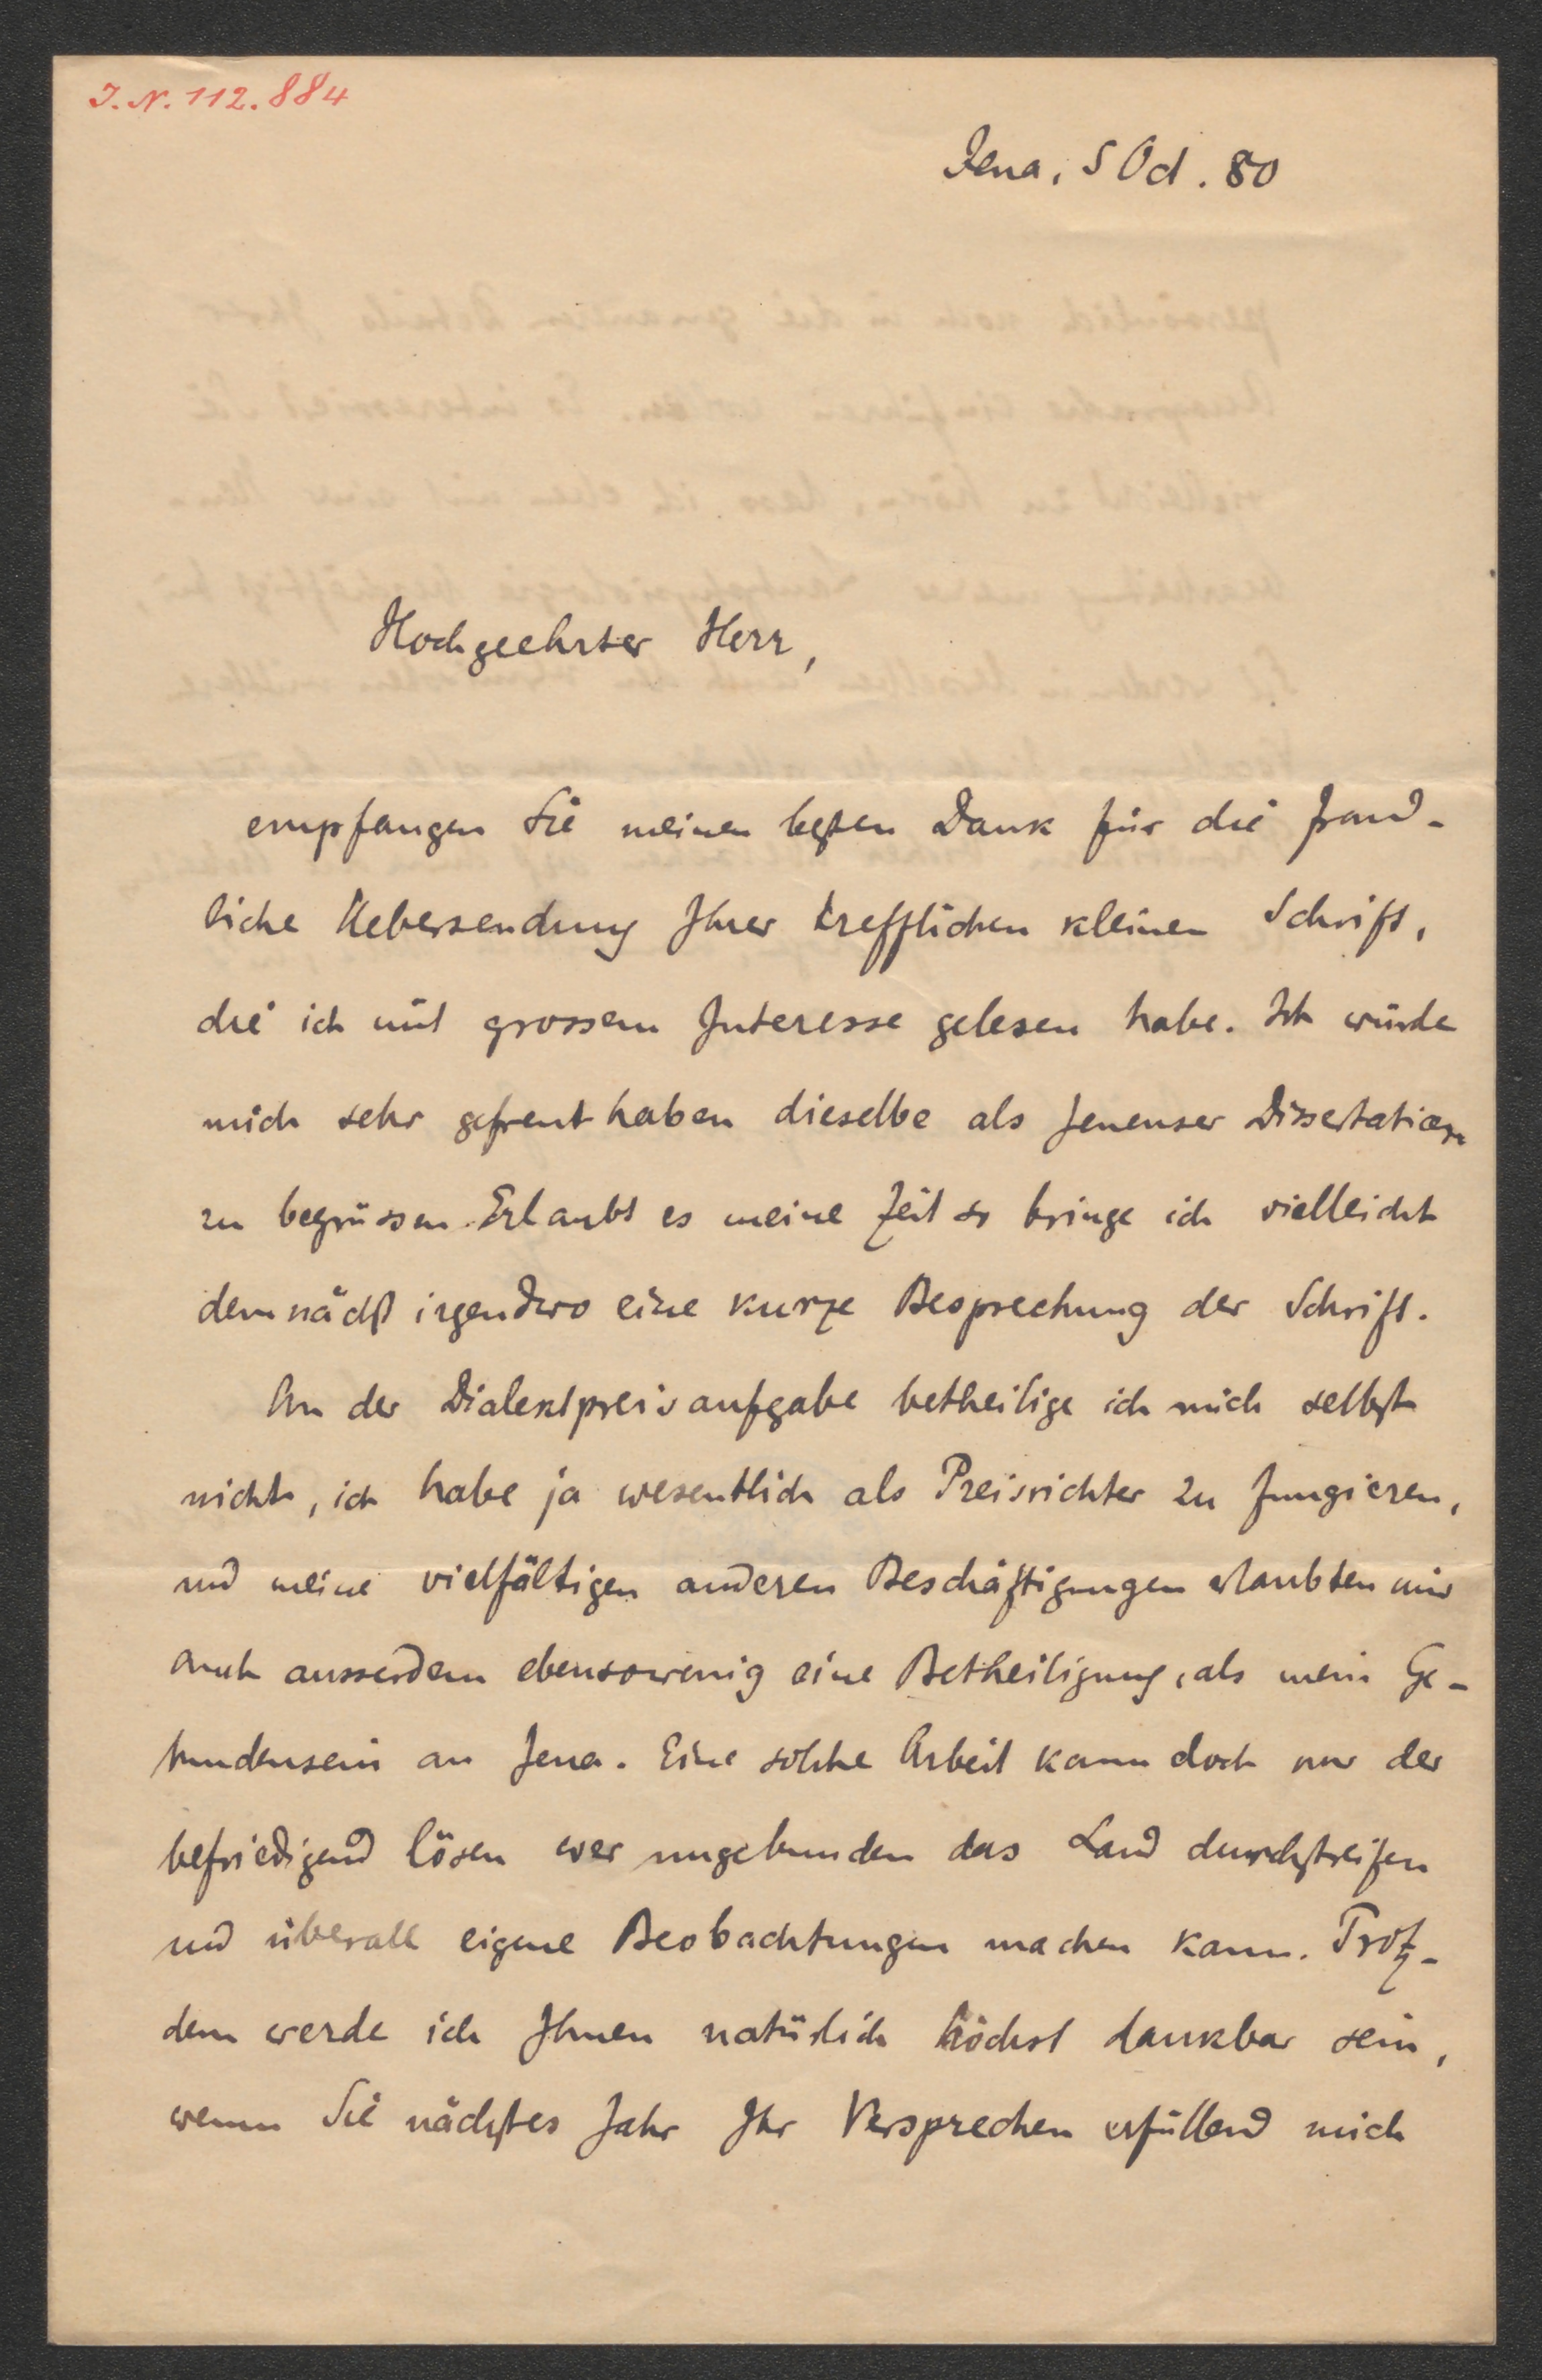 I.N. 112.884
Jena, 5 Oct. 80
Hochgeehrter Herr,
empfangen Sie meinen besten Dank für die freund-
liche Uebersendung Ihrer trefflichen kleinen Schrift,
die ich mit grossem Interesse gelesen habe. Ich würde
mich sehr gefreut haben dieselbe als Jenenser Dissertation
zu begrüssen. Erlaubt es meine Zeit so bringe ich vielleicht
demnächst irgendwo eine kurze Besprechung der Schrift.
An der Dialektpreisaufgabe betheilige ich mich selbst
nicht, ich habe ja wesentlich als Preisrichter zu fungieren,
und meine vielfältigen anderen Beschäftigungen erlaubten mir
auch ausserdem ebensowenig eine Betheiligung, als mein Ge-
bundensein an Jena. Eine solche Arbeit kann doch nur der
befriedigend lösen wer ungebunden das Land durchstreifen
und überall eigene Beobachtungen machen kann. Trotz-
dem werde ich Ihnen natürlich höchst dankbar sein,
wenn Sie nächstes Jahr Ihr Versprechen erfüllend mich